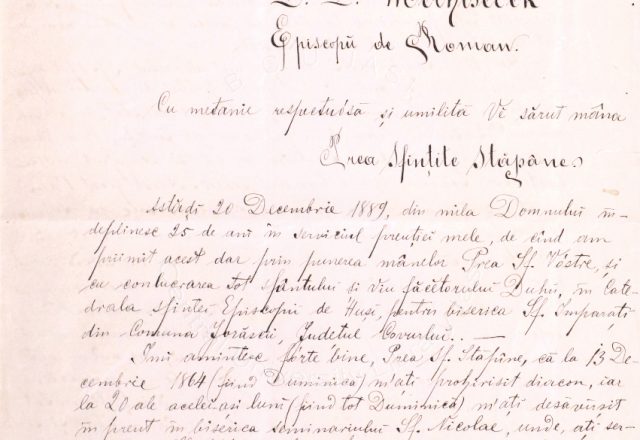 D. D. Melchisedek
Episcopŭ de Roman.
Cu metanie respectuósă și umilită Vĕ sărut mâna
Prea Sfințite Stăpâne.
Astăḑĭ 20 Decembrie 1889, din mila Domnului în-
deplinesc 25 de anĭ în serviciul preuției mele, de cînd am
priimit acest dar prin punerea mânelor Prea Sf. Vóstre, și
cu conlucrarea tot sfântului și Viu făcĕtoruluĭ Duhŭ, în Cate-
drala sfinteĭ Episcopiĭ de Hușĭ, pentru biserica Sf. Împărațĭ
din Comuna Jorăscĭ Județul Covurluĭ.. —
Îmĭ amintesc fórte bine, Prea Sf. Stăpîne, că la 13 De-
cembrie 1864 (fiind Duminică) m'ațĭ prohirisit diacon, iar
la 20 ale aceleĭ-așĭ lunĭ (fiind tot Duminică) m'ațĭ desăvîrșit
în preut în biserica seminaruluĭ Sf. Nicolae, unde, ațĭ ser-